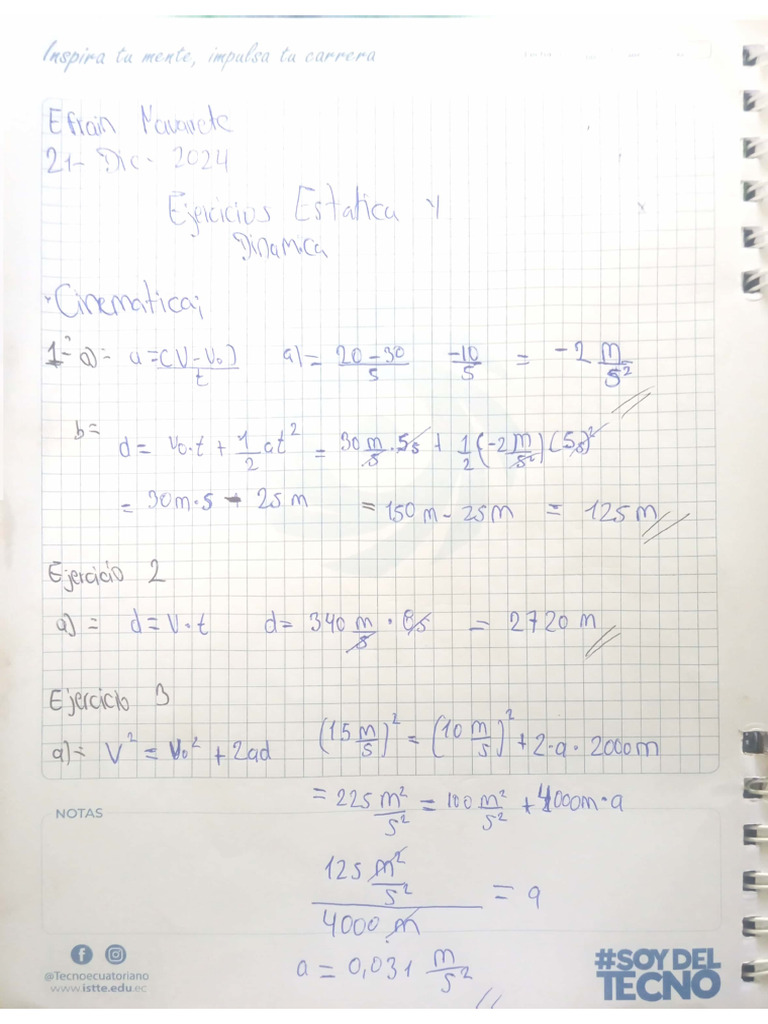 Inspira tu mente, impulsa tu carrera
Efrain Navarrete
21- Dic - 2024
Ejercicios Estatica y
Dinamica
Cinematica;
1- a) = a = (V - V₀) / t   a) = 20 - 30 / 5   -10 / 5 = -2 m/s²
b = d = V₀ · t + 1/2 at² = 30 m/s · 5s + 1/2 (-2 m/s²) (5s)²
= 30m · 5 - 25m = 150m - 25m = 125m
Ejercicio 2
a) = d = V · t   d = 340 m/s · 8s = 2720 m
Ejercicio 3
a) = V² = V₀² + 2ad   (15 m/s)² = (10 m/s)² + 2 · a · 2000m
= 225 m²/s² = 100 m²/s² + 4000m · a
NOTAS
125 m²/s² / 4000 m = a
a = 0,031 m/s²
@Tecnoecuatoriano
www.istte.edu.ec
#SOYDEL
TECNO